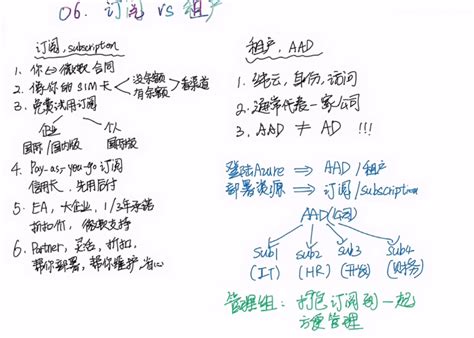 06. 订阅 vs 租户
订阅, subscription
1. 你 ⇔ 微软 合同
2. 像你的SIM卡 没余额 有余额 看渠道
3. 免费试用订阅
企业 个人
国际/国内版 国际版
4. Pay-as-you-go 订阅
信用卡, 先用后付
5. EA, 大企业, 1/3年承诺
折扣价, 微软支持
6. Partner, 灵活, 折扣,
帮你部署, 帮你维护, 省心
租户, AAD
1. 纯云, 身份, 访问
2. 通常代表一家公司
3. AAD ≠ AD !!!
登陆Azure ⇒ AAD/租户
部署资源 ⇒ 订阅/subscription
AAD(公司)
sub1 sub2 sub3 sub4
(IT) (HR) (开发) (财务)
管理组: 打包订阅到一起
方便管理